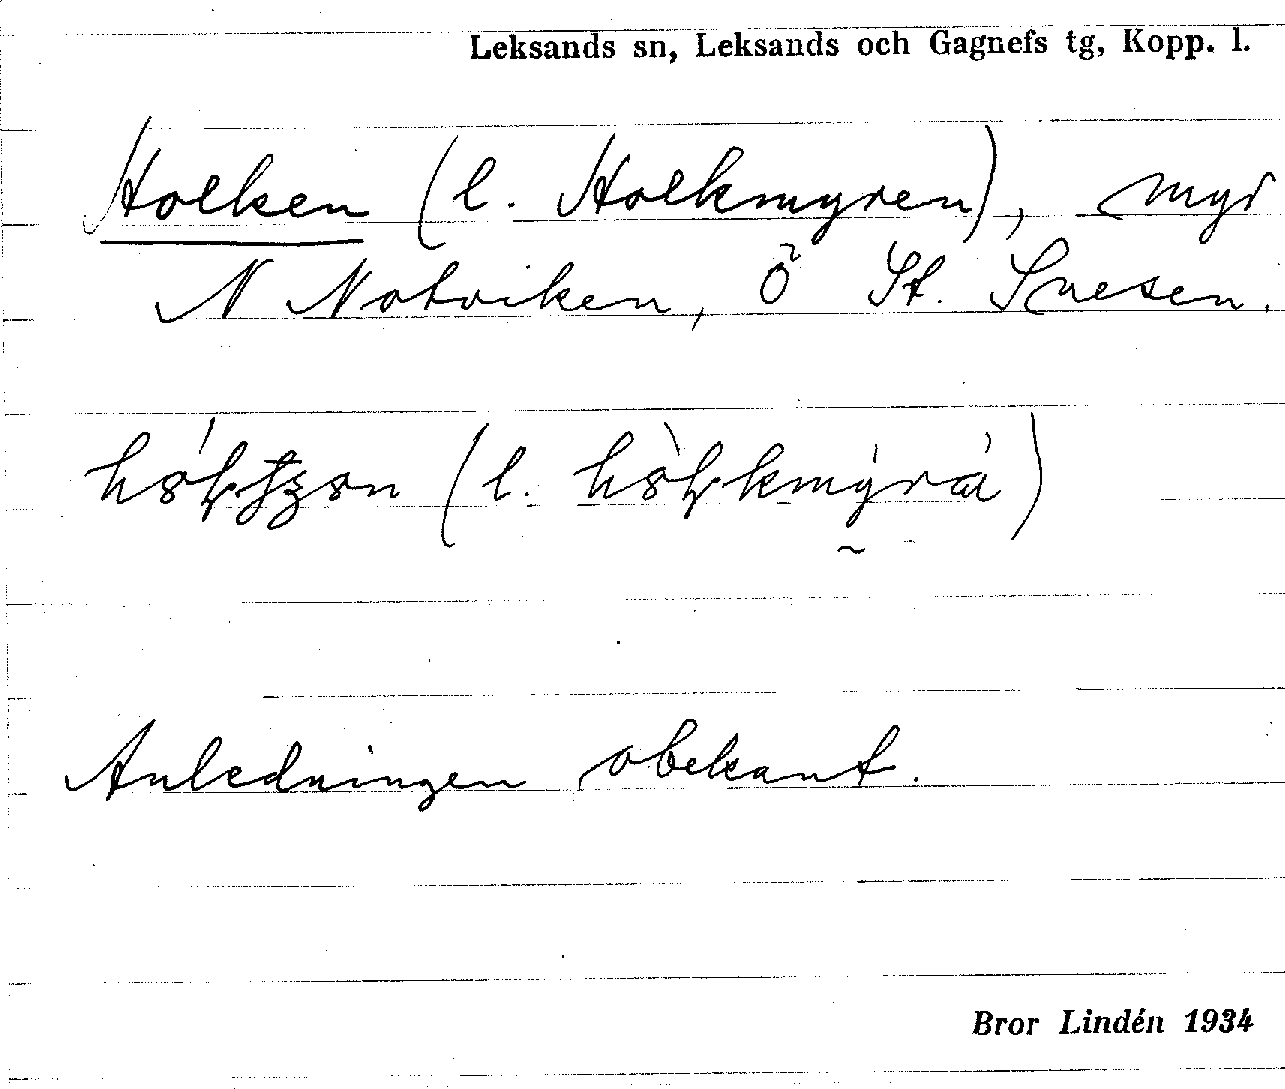 Leksands sn, Leksands och Gagnefs tg, Kopp. l.
Holken (l. Holkmyren), myr
N Notviken, Ö St. Snesen.
(l.
Anledningen obekant.
Bror Lindén 1934